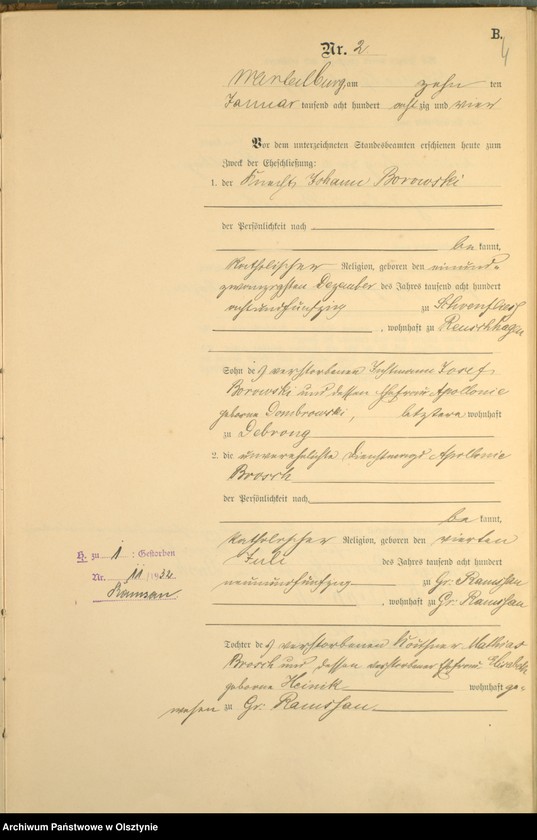 B.
4
Nr. 2
Wartelburg, am zehn ten
Januar tausend acht hundert achtzig und vier
Vor dem unterzeichneten Standesbeamten erschienen heute zum
Zweck der Eheschließung:
1. der Knecht Johann Borowski
der Persönlichkeit nach
be kannt,
katholischer Religion, geboren den einund-
zwanzigsten Dezember des Jahres tausend acht hundert
achtundfünfzig zu
, wohnhaft zu Reuschhagen
Sohn des verstorbenen Instmann Josef
Borowski und dessen Ehefrau Apollonie
geborne Dombrowski, letztere wohnhaft
zu Debrong
2. die unverehelichte Dienstmagd Apollonie
Brosch
der Persönlichkeit nach
be kannt,
katholischer Religion, geboren den vierten
Juli des Jahres tausend acht hundert
neunundfünfzig zu Gr. Ramsau
, wohnhaft zu Gr. Ramsau
H. zu 1 : Gestorben
Nr. 11/1932
Ramsau
Tochter des verstorbenen Käthner Mathias
Brosch und dessen verstorbener Ehefrau Elisabeth
geborne Heinik wohnhaft ge-
wesen zu Gr. Ramsau
Archiwum Państwowe w Olsztynie